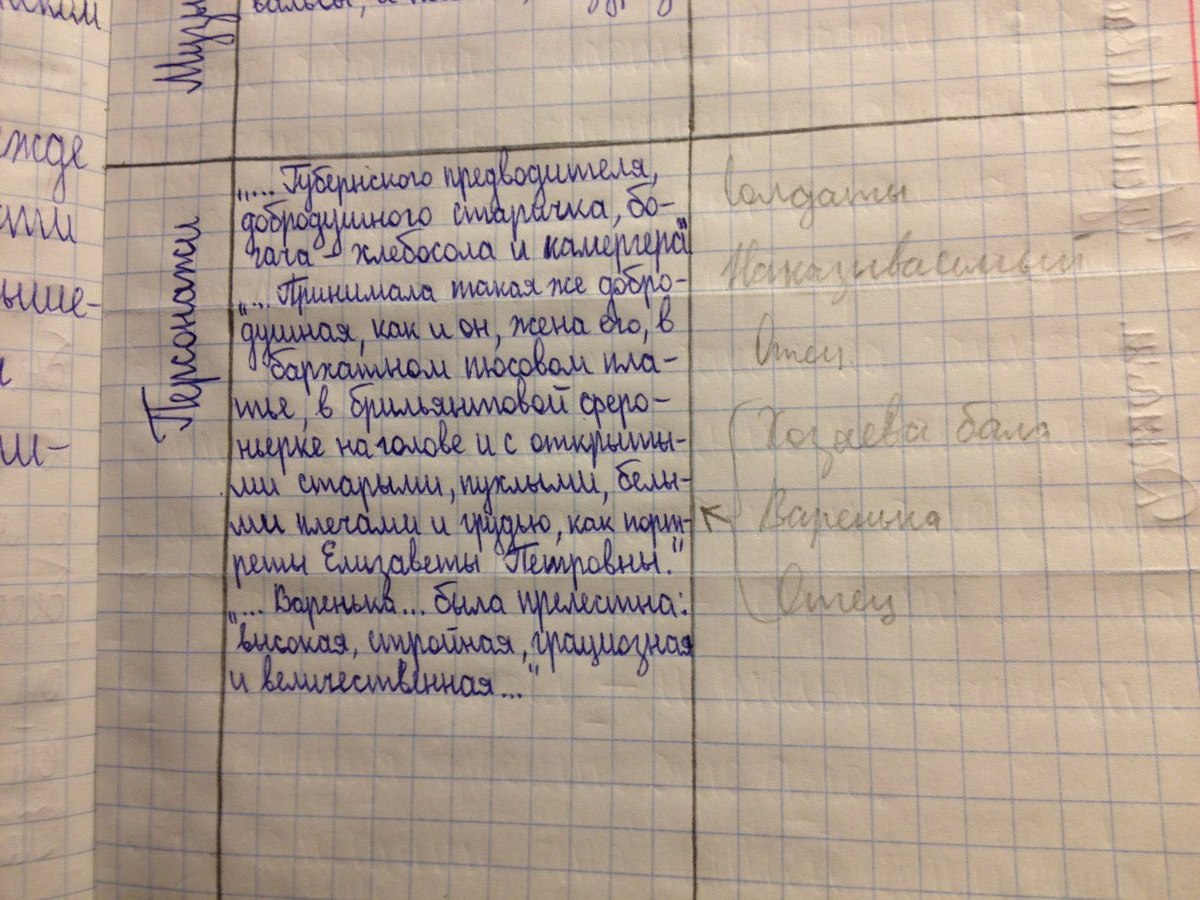 Музы
Персонажи
„... Губернского предводителя,
добродушного старичка, бо-
гача – хлебосола и камергера“
„... Принимала такая же добро-
душная, как и он, жена его, в
бархатном пюсовом пла-
тье, в брильянтовой феро-
ньерке на голове и с открыты-
ми старыми, пухлыми, белы-
ми плечами и грудью, как порт-
реты Елизаветы Петровны."
„... Варенька... была прелестна:
высокая, стройная, грациозная
и величественная..."
Солдаты
Наказываемый
Отец
Хозяева бала
Варенька
Отец
жде
ыше-
ши-